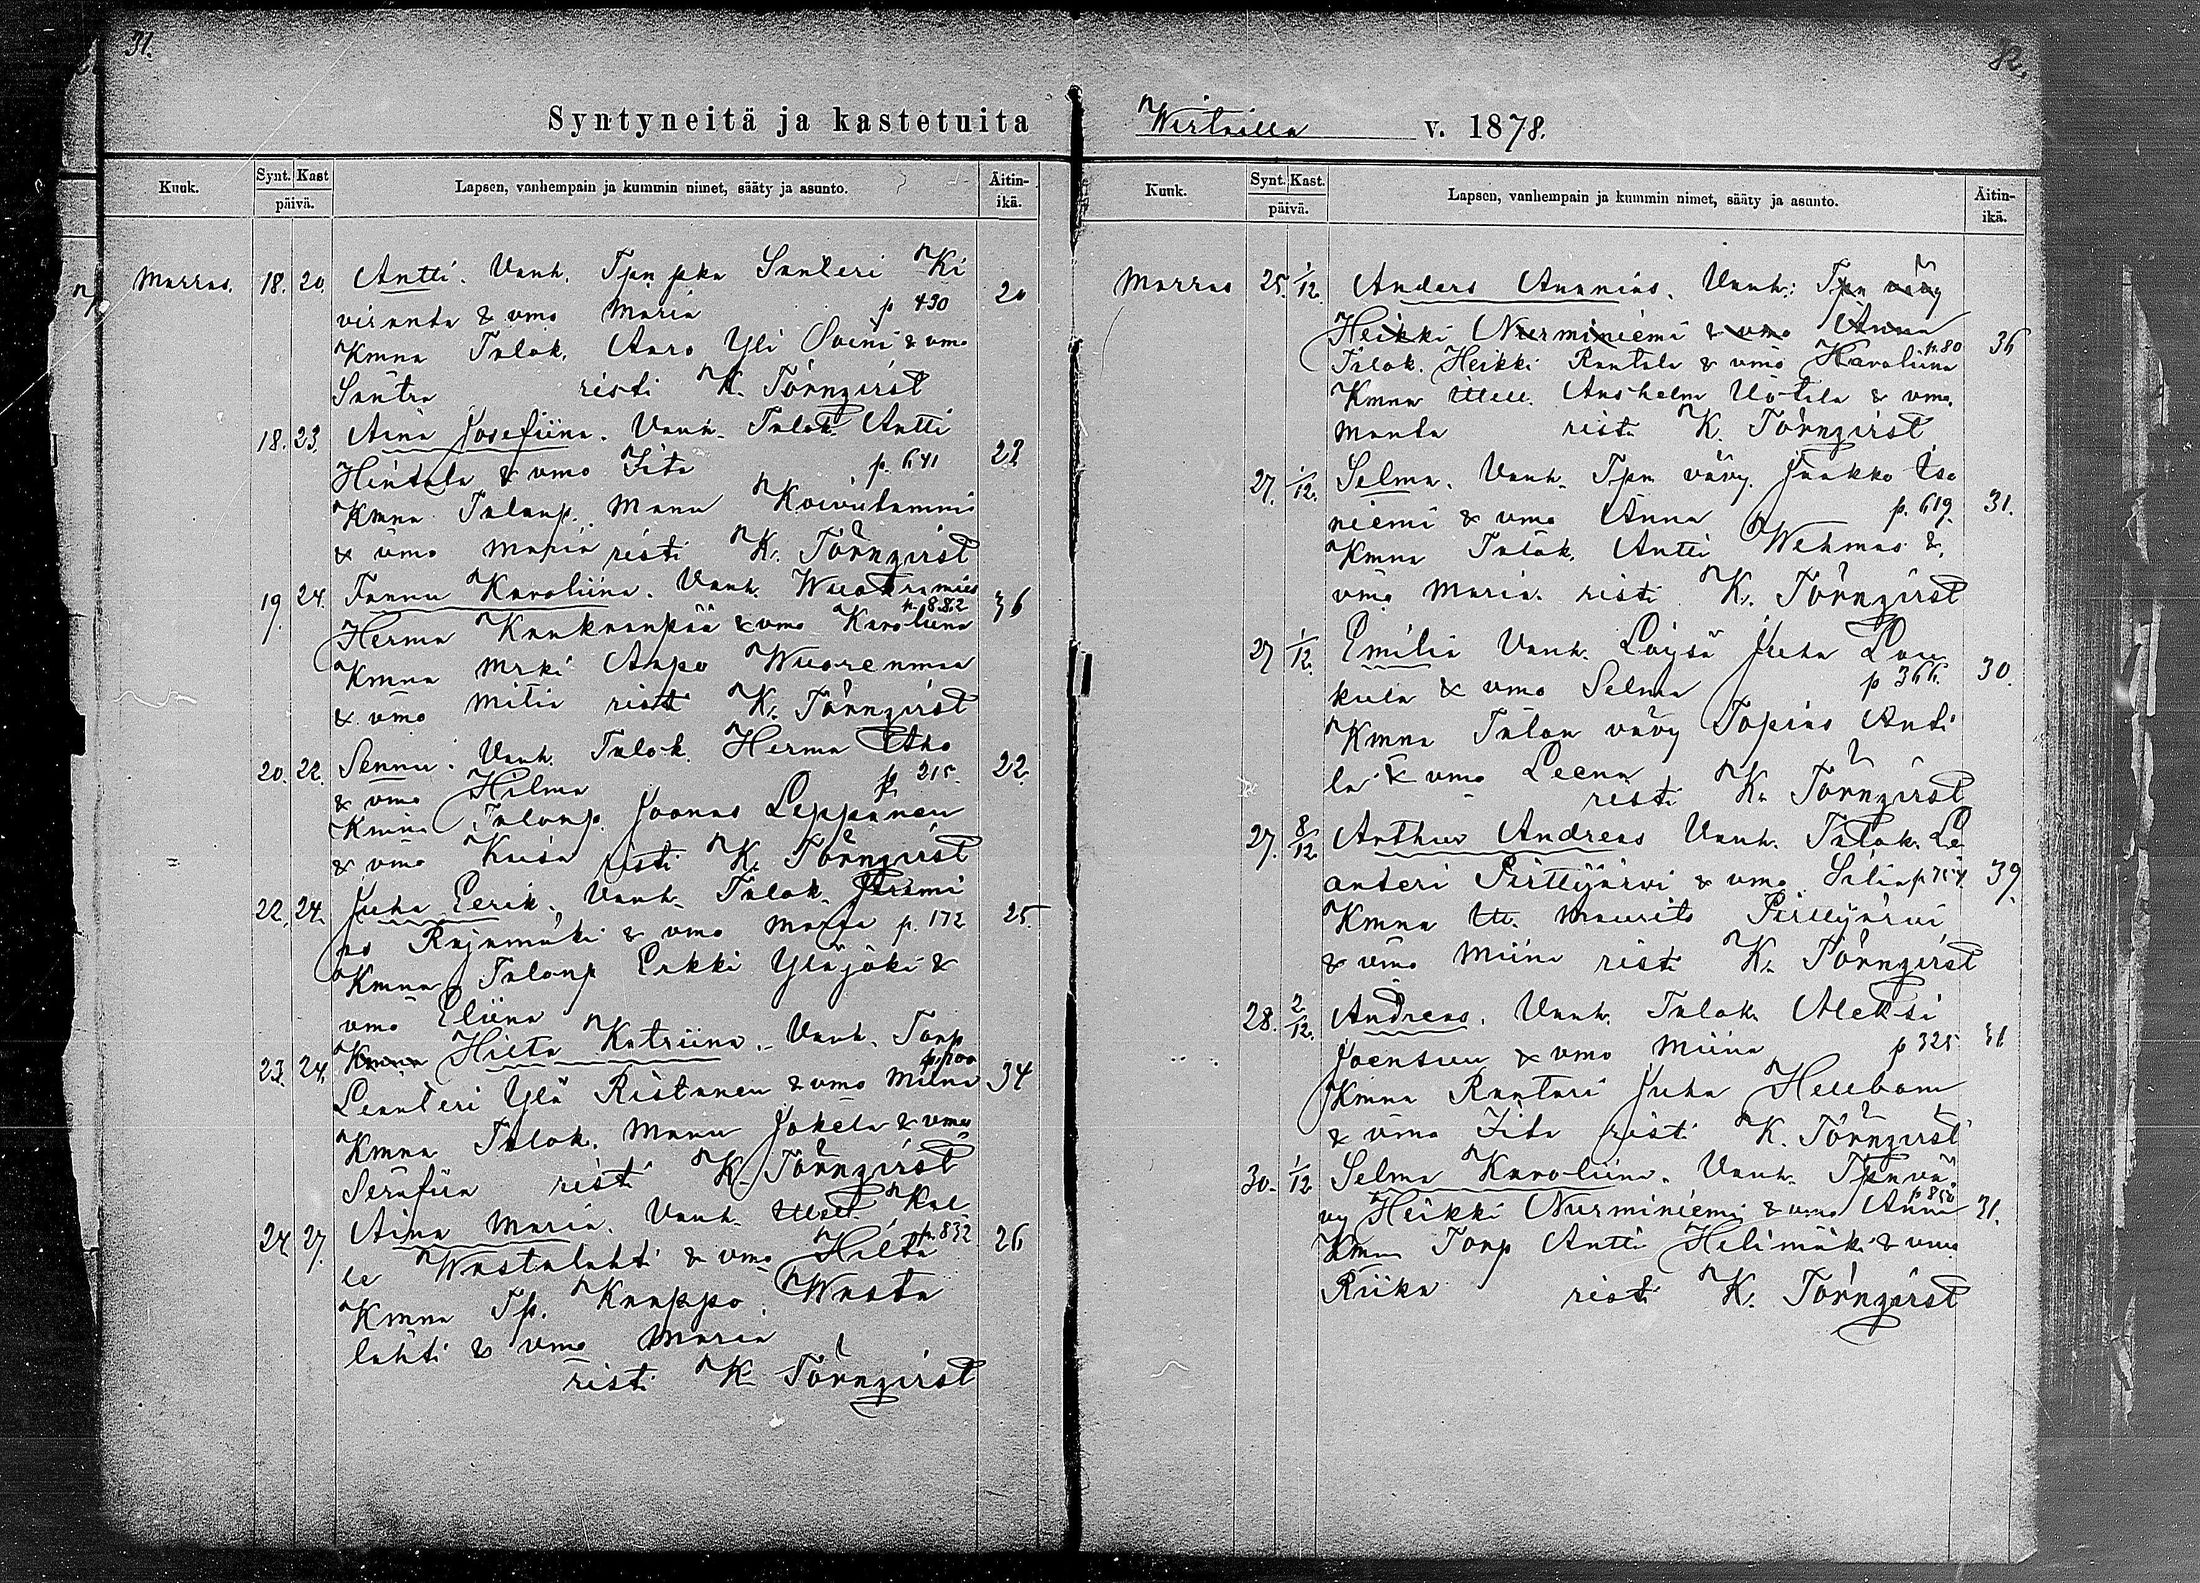 31.
Syntyneitä ja kastetuita
Kuuk.
Synt. Kast
päivä.
Lapsen, vanhempain ja kummin nimet, sääty ja asunto.
Äitin-
ikä.
Marras. 18. 20. Antti. Vanh. Tpn pka Santeri Ki
viranta & vmo Maria p 430 20
Kmna Talok. Aaro Yli Soini & vmo
Santra risti K. Törnqvist
18. 23. Aina Josefiina. Vanh. Talok. Antti
Hintala & vmo Fita p. 641 22
Kmna Talonp. Manu Koivulammi
& vmo Maria risti K. Törnqvist
19. 24. Fannu Karoliina. Vanh. Wuokramies
Herma Kankaanpää & vmo Karoliina p. 882 36
Kmna Mrki Aapo Wuorenmaa
& vmo Milia risti K. Törnqvist
20. 22. Sennu. Vanh. Talok. Herma Aho
& vmo Hilma p 215. 22.
Kmna Talonp. Joonas Leppänen
& vmo Kaisa risti K. Törnqvist
22. 24. Juha Eerik. Vanh. Talok. Jeremi
as Rajamäki & vmo Maria p. 172 25.
Kmna Talonp Erkki Yläjoki &
vmo Eliina
23. 24. Kmna Hilta Katriina. Vanh. Torp
Leanteri Ylä Ristanen & vmo Miina p 700 34
Kmna Talok. Manu Jokela & vmo
Serafia risti K. Törnqvist
24. 27. Aina Maria. Vanh. Itell Kal
le Wastalahti & vmo Hilta p. 832 26
Kmna Tp. Kaappo Wasta
lahti & vmo Maria
risti K. Törnqvist
32.
Wirtailla v. 1878.
Kuuk.
Synt. Kast.
päivä.
Lapsen, vanhempain ja kummin nimet, sääty ja asunto.
Äitin-
ikä.
Marras 25. 1/12. Anders Ananias. Vanh: Tpn vävy
Heikki Nurminiemi & vmo Anna
Talok. Heikki Rantala & vmo Karoliina p. 80 36
Kmna Itell. Anshelm Uotila & vmo.
Manta risti K. Törnqvist
27. 1/12. Selma. Vanh. Tpn vävy. Jaakko Iso
niemi & vmo Anna p. 619. 31.
Kmna Talok. Antti Wehmas &
vmo Maria. risti K. Törnqvist
27 1/12. Emilia Vanh. Löysä Juha Lou
kula & vmo Selma p 366. 30.
Kmna Talon vävy Topias Anti
la & vmo Leena
risti K. Törnqvist
27. 8/12. Arthur Andreas Vanh. Talok. Le
anteri Pirttijärvi & vmo. Silia p 754 39.
Kmna Itt. Maurits Pirttijärvi
& vmo Miina risti K. Törnqvist
28. 2/12. Andreas. Vanh. Talok. Aleksi
Joensuu & vmo Miina p 325
Kmna Rantari Juha Hellbom
& vmo Fita risti K. Törnqvist
30. 1/12 Selma Karoliina. Vanh. Tpn vä
vy Heikki Nurminiemi & vmo Anna p 850 31.
Kmna Torp Antti Helimäki & vmo
Riika risti K. Törnqvist